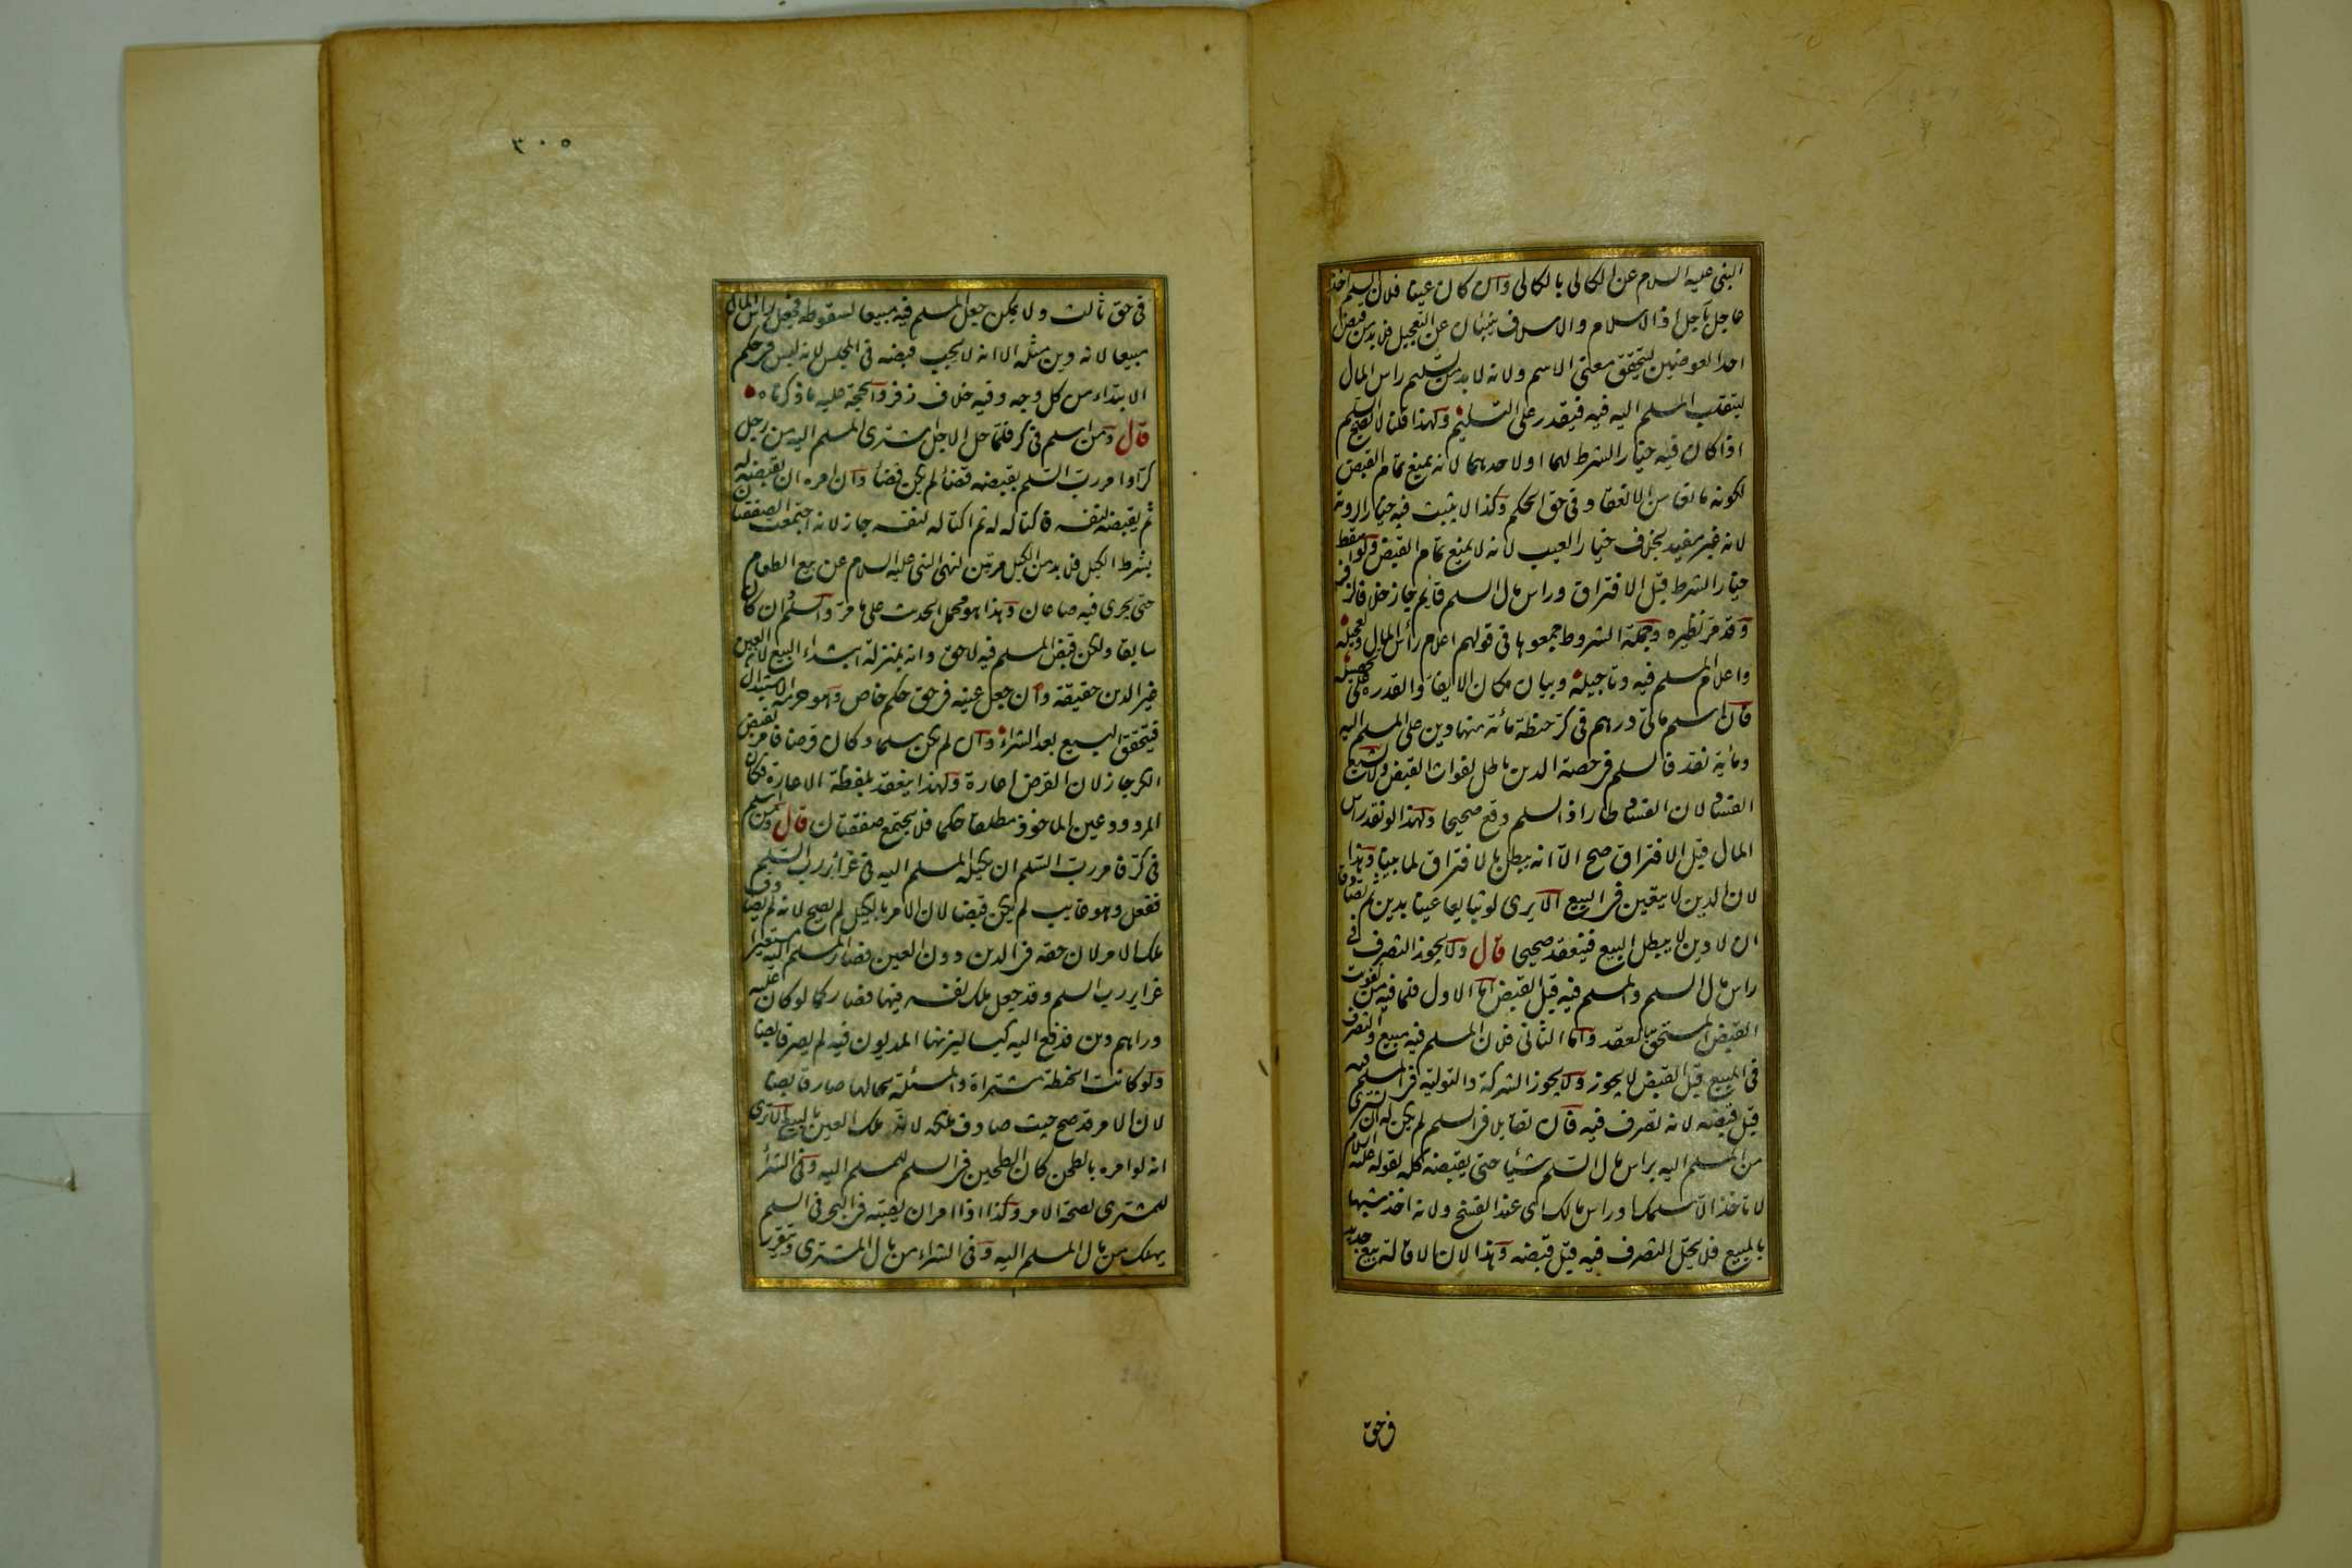 النبى عليه السلام عن الكالى بالكالى وان كان عينا فلان السلم اخذ
عاجل بآجل اذ الاسلام والاسلاف ينبئان عن التعجيل فلا بد من قبض
احد العوضين ليتحقق معنى الاسم ولانه لا بد من تسليم راس المال
ليتقلب المسلم اليه فيه فيقدر على التسليم ولهذا قلنا لا يصح السلم
اذا كان فيه خيار الشرط لهما او لاحدهما لانه يمنع تمام القبض
لكونه مانعا من الانعقاد فى حق الحكم وكذا لا يثبت فيه خيار الروية
لانه غير مفيد بخلاف خيار العيب لانه لا يمنع تمام القبض ولو اسقط
خيار الشرط قبل الافتراق وراس مال السلم قايم جاز خلافا لزفر
وقد مر نظيره وجملة الشروط جمعوها فى قولهم اعلام رأس المال وتعجيله
واعلام المسلم فيه وتاجيله وبيان مكان الايفاء والقدرة على تحصيله
فان اسلم مائتى دراهم فى كر حنطة مائة منها دين على المسلم اليه
ومائة نقد فالسلم فى حصة الدين باطل لفوات القبض ولا يشيع
الفساد لان الفساد طار اذ السلم وقع صحيحا ولهذا لو نقد راس
المال قبل الافتراق صح الا انه يبطل بالافتراق لما بينا وهذا
لان الدين لا يتعين فى البيع الا يرى لو تبايعا عينا بدين ثم تصادقا
ان لا دين لا يبطل البيع فينعقد صحيحا قال ولا يجوز التصرف فى
راس مال السلم والمسلم فيه قبل القبض اما الاول فلما فيه من تفويت
القبض المستحق بالعقد واما الثانى فلان المسلم فيه مبيع والتصرف
فى المبيع قبل القبض لا يجوز ولا يجوز الشركة والتولية فى المسلم فيه
قبل قبضه لانه تصرف فيه فان تقايلا فى السلم لم يكن له ان يشترى
من المسلم اليه براس مال السلم شيئا حتى يقبضه كله لقوله عليه السلام
لا تاخذ الا سلمك او راس مالك اى عند الفسخ ولانه اخذ شبها
بالمبيع فلا يحل التصرف فيه قبل قبضه وهذا لان الاقالة بيع جديد
فى حق
٣٠٥
فى حق ثالث ولا يمكن جعل المسلم فيه مبيعا لسقوطه فجعل راس المال
مبيعا لانه دين مثله الا انه لا يجب قبضه فى المجلس لانه ليس فى حكم
الابتداء من كل وجه وفيه خلاف زفر والحجة عليه ما ذكرناه
قال ومن اسلم فى كر فلما حل الاجل اشترى المسلم اليه من رجل
كرا وامر رب السلم بقبضه قضاء لم يكن قضاء وان امره ان يقبضه له
ثم يقبضه لنفسه فاكتاله له ثم اكتاله لنفسه جاز لانه اجتمعت الصفقتان
بشرط الكيل فلا بد من الكيل مرتين لنهى النبى عليه السلام عن بيع الطعام
حتى يجرى فيه صاعان وهذا هو محمل الحديث على ما مر والسلم وان كان
سابقا ولكن قبض المسلم فيه لاحق وانه بمنزلة ابتداء البيع لان العين
غير الدين حقيقة وان جعل عينه فى حق حكم خاص وهو حرمة الاستبدال
فيتحقق البيع بعد الشراء وان لم يكن سلما وكان قرضا فامر بقبض
الكر جاز لان القرض اعارة ولهذا ينعقد بلفظة الاعارة فكان
المردود عين الماخوذ مطلقا حكما فلا يجتمع صفقتان قال ومن اسلم
فى كر فامر رب السلم ان يكيله المسلم اليه فى غراير رب السلم
ففعل وهو غايب لم يكن قبضا لان الامر بالكيل لم يصح لانه لم يصادف
ملك الامر لان حقه فى الدين دون العين فصار المسلم اليه مستعيرا
غراير رب السلم وقد جعل ملك نفسه فيها فصار كما لو كان عليه
دراهم دين فدفع اليه كيسا ليزنها المديون فيه لم يصر قابضا
ولو كانت الحنطة مشتراة والمسئلة بحالها صار قابضا
لان الامر قد صح حيث صادف ملكه لانه ملك العين بالبيع الا ترى
انه لو امره بالطحن كان الطحين فى السلم للمسلم اليه وفى الشراء
للمشترى لصحة الامر وكذا اذا امر ان يصبه فى البحر فى السلم
يهلك من مال المسلم اليه وفى الشراء من مال المشترى ويتقرر